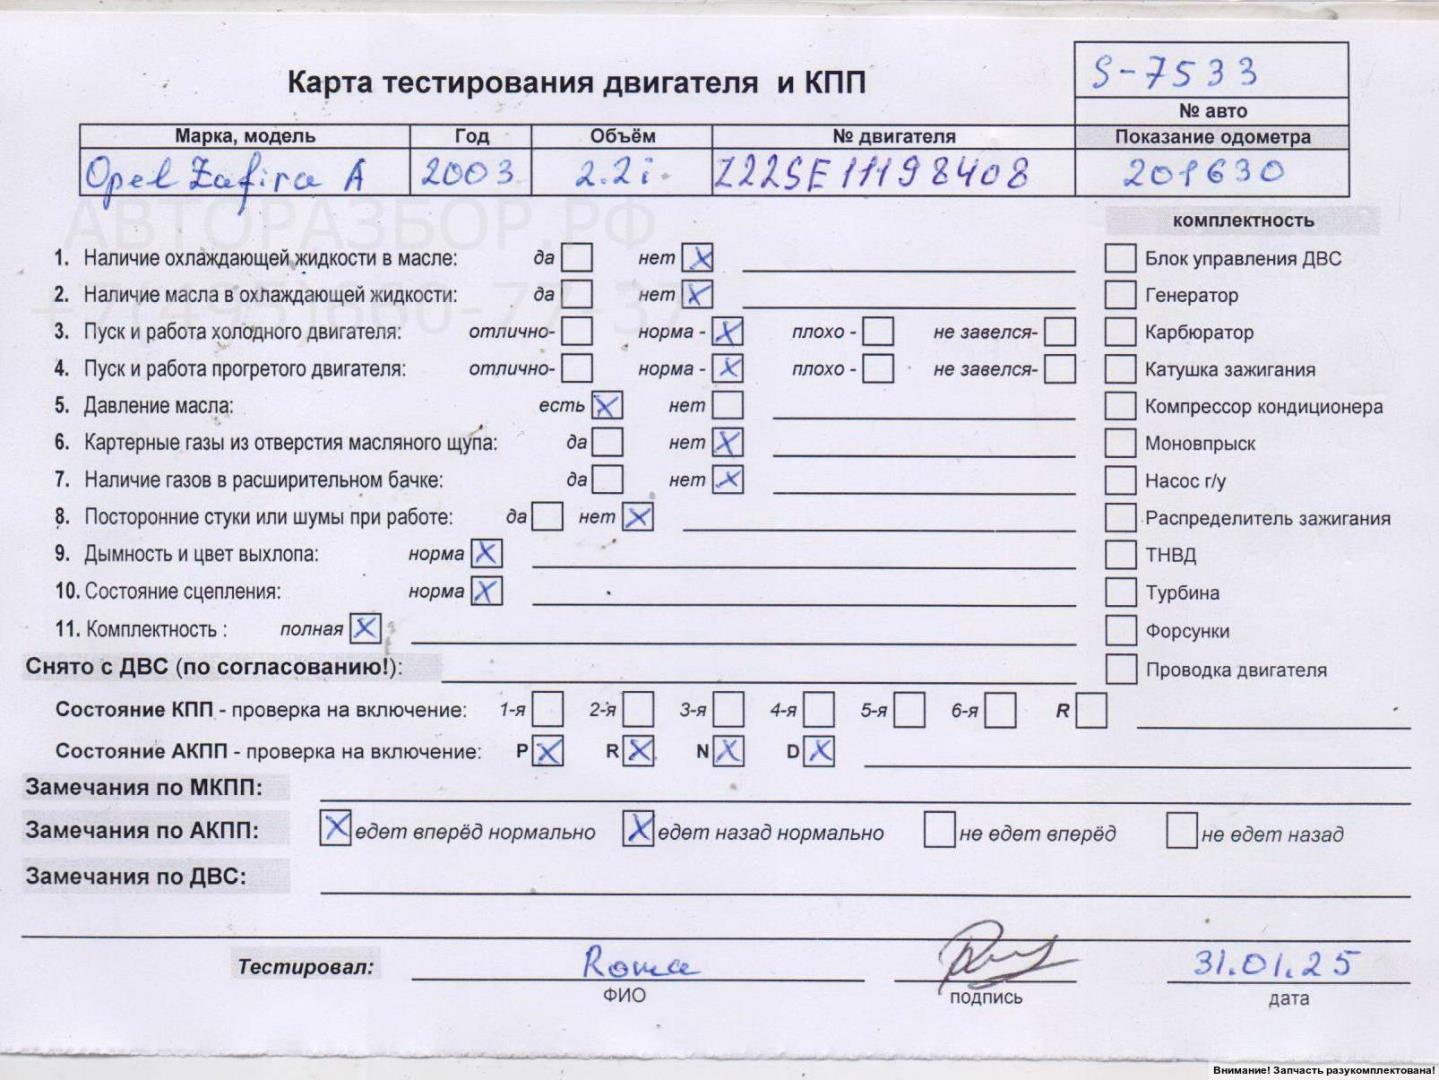 S-7533
Карта тестирования двигателя и КПП
№ авто
Марка, модель Год Объём № двигателя Показание одометра
Opel Zafira A 2003 2.2i Z22SE11198408 201630
АВТОРАЗБОР.РФ
+7(495)660-77-37
комплектность
1. Наличие охлаждающей жидкости в масле: да нет X Блок управления ДВС
2. Наличие масла в охлаждающей жидкости: да нет X Генератор
3. Пуск и работа холодного двигателя: отлично- норма - X плохо - не завелся- Карбюратор
4. Пуск и работа прогретого двигателя: отлично- норма - X плохо - не завелся- Катушка зажигания
5. Давление масла: есть X нет Компрессор кондиционера
6. Картерные газы из отверстия масляного щупа: да нет X Моновпрыск
7. Наличие газов в расширительном бачке: да нет X Насос г/у
8. Посторонние стуки или шумы при работе: да нет X Распределитель зажигания
9. Дымность и цвет выхлопа: норма X ТНВД
10. Состояние сцепления: норма X Турбина
11. Комплектность : полная X Форсунки
Снято с ДВС (по согласованию!): Проводка двигателя
Состояние КПП - проверка на включение: 1-я 2-я 3-я 4-я 5-я 6-я R
Состояние АКПП - проверка на включение: P X R X N X D X
Замечания по МКПП:
Замечания по АКПП: X едет вперёд нормально X едет назад нормально не едет вперёд не едет назад
Замечания по ДВС:
Тестировал: Рома 31.01.25
ФИО подпись дата
Внимание! Запчасть разукомплектована!